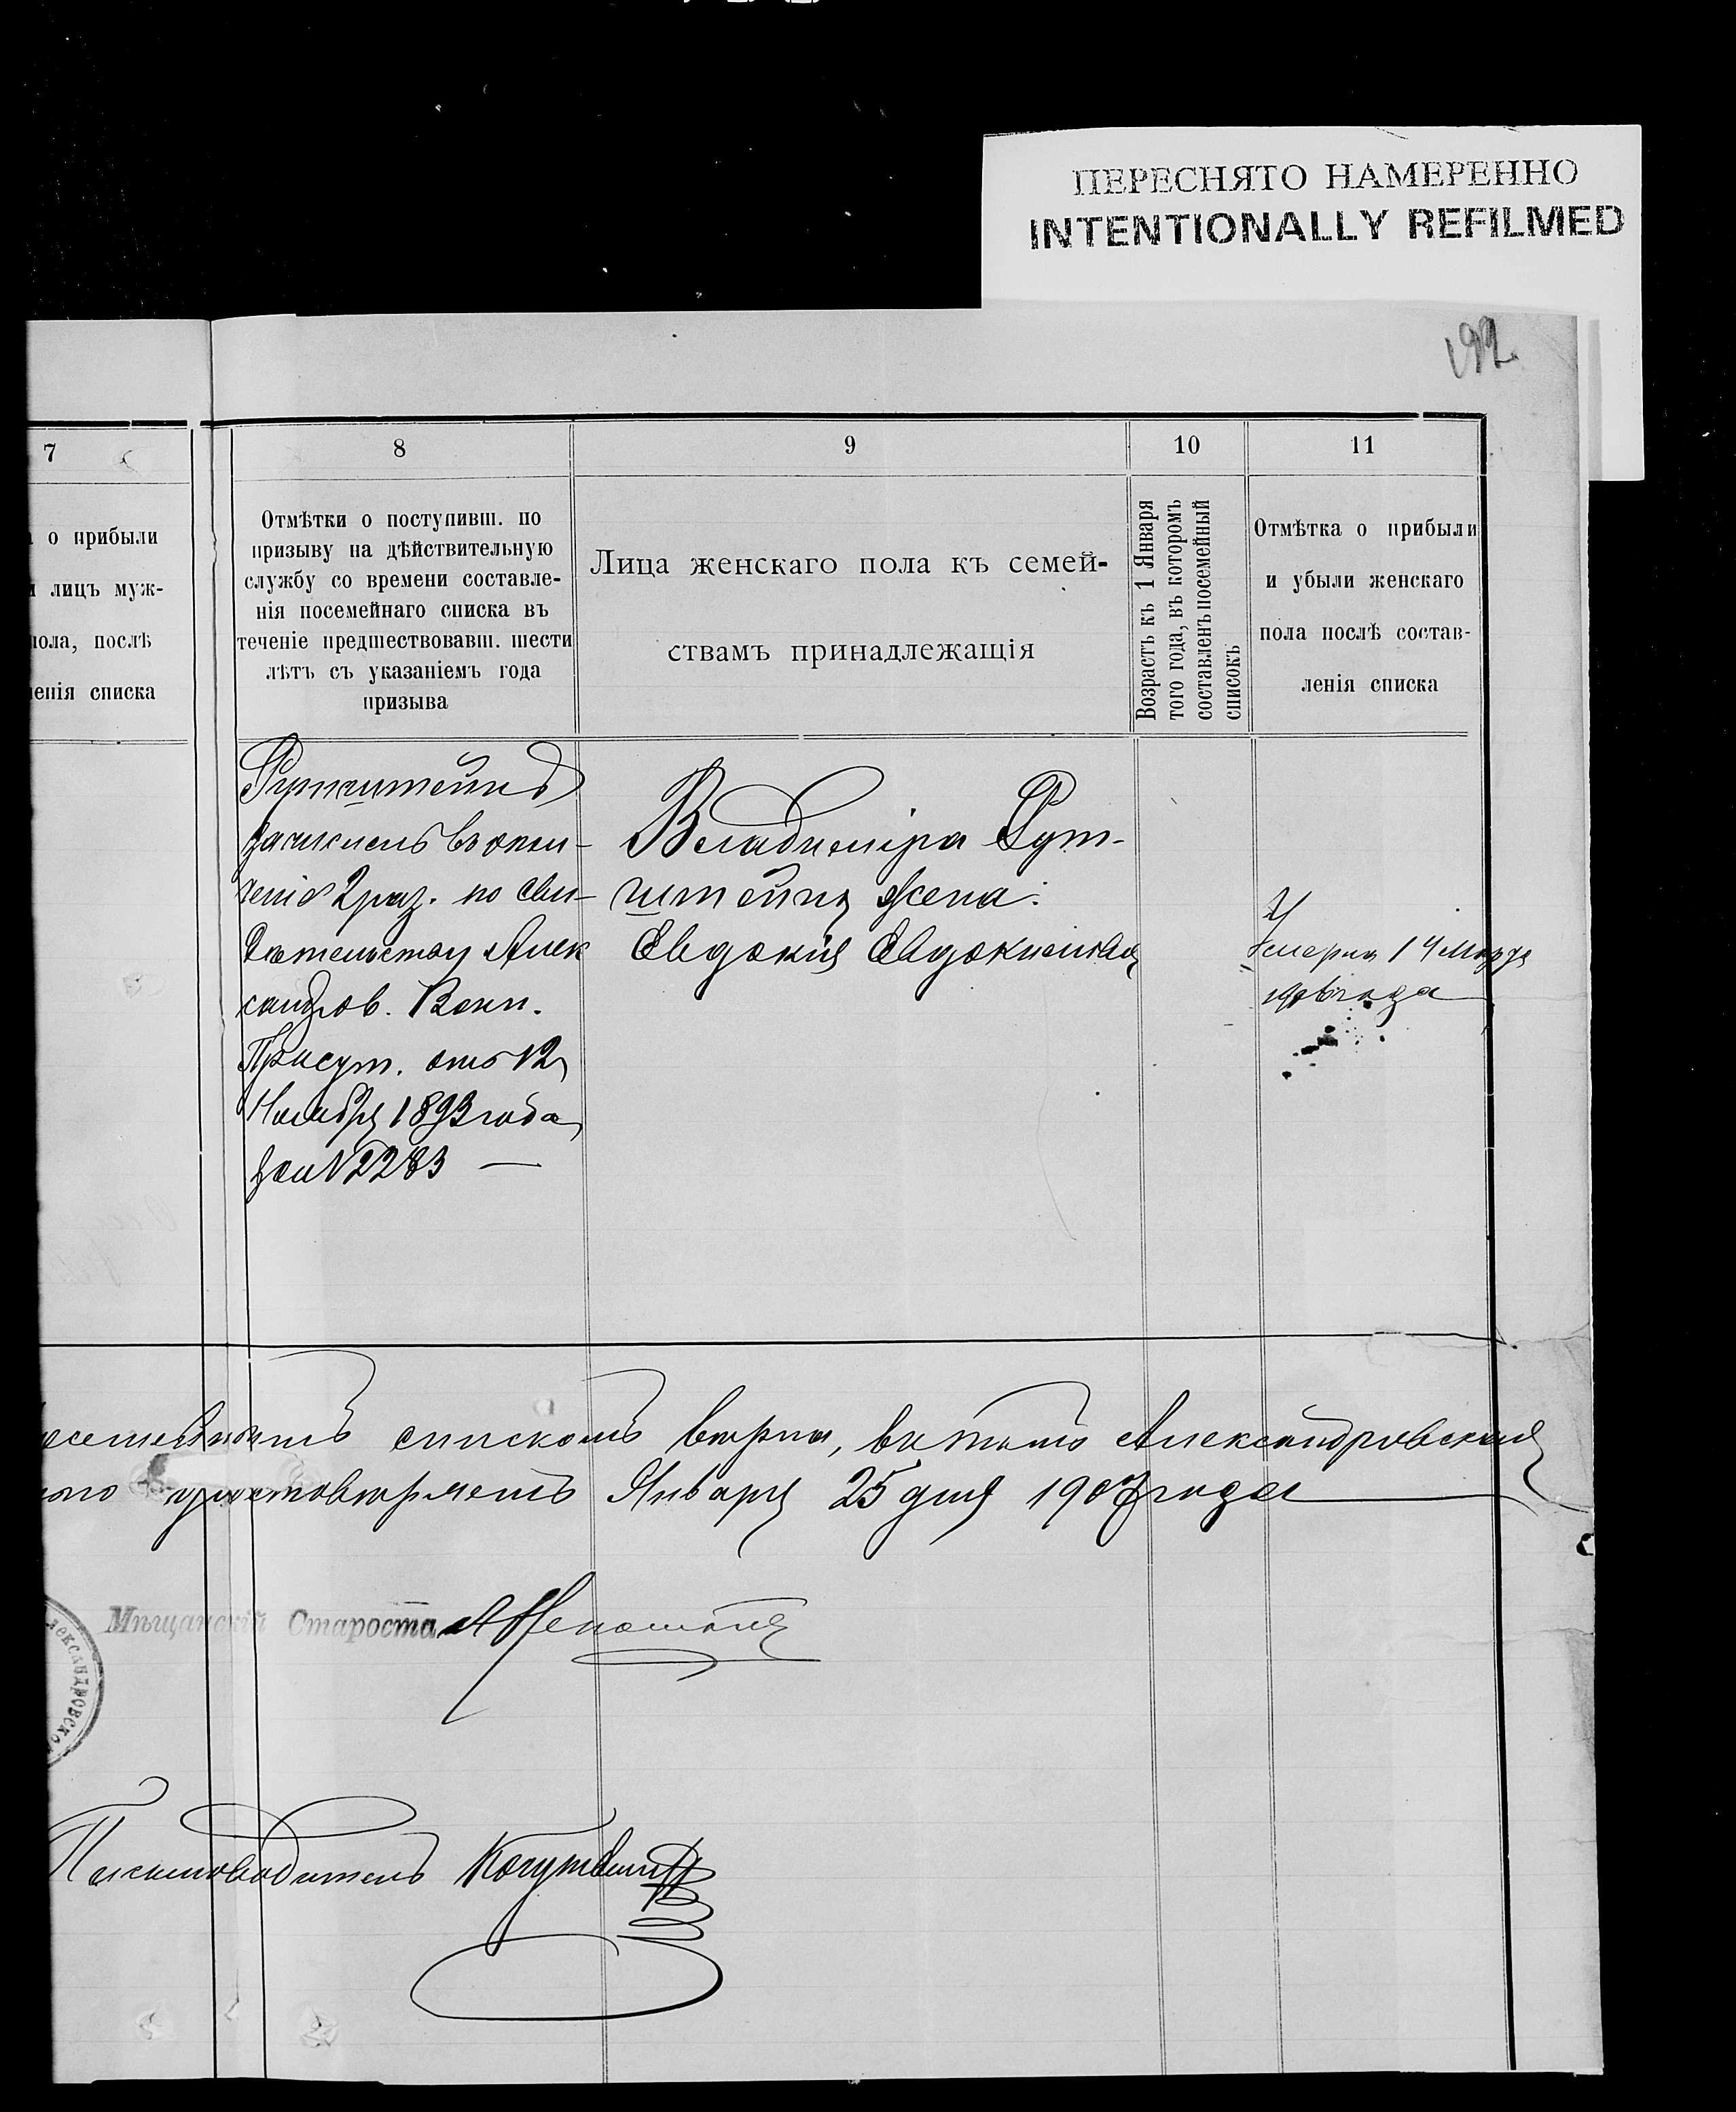 ПЕРЕСНЯТО НАМЕРЕННО
INTENTIONALLY REFILMED
192.
7
8
9
10
11
о прибыли
лицъ муж-
пола, послѣ
ленія списка
Отмѣтки о поступивш. по
призыву на дѣйствительную
службу со времени составле-
нія посемейнаго списка въ
теченіе предшествовавш. шести
лѣтъ съ указаніемъ года
призыва
Лица женскаго пола къ семей-
ствамъ принадлежащія
Возрастъ къ 1 Января
того года, въ которомъ
составленъ посемейный
списокъ
Отмѣтка о прибыли
и убыли женскаго
пола послѣ состав-
ленія списка
Зачисленъ въ опол-
ченіе 2 раз. по сви-
дѣтельству Алек
сандров. Воин.
Присут. отъ 12
Ноября 1893 года
за № 2283 —
Владиміра Рут-
штейна жена:
Евдокія Евдокимова
Умерла 14 Марта
1906 года
списком вѣрна, въ томъ Александровская
удостовѣряетъ Января 25 дня 1907 года
Мѣщанскій Староста
АЛЕКСАНДРОВСКО
Письмоводитель